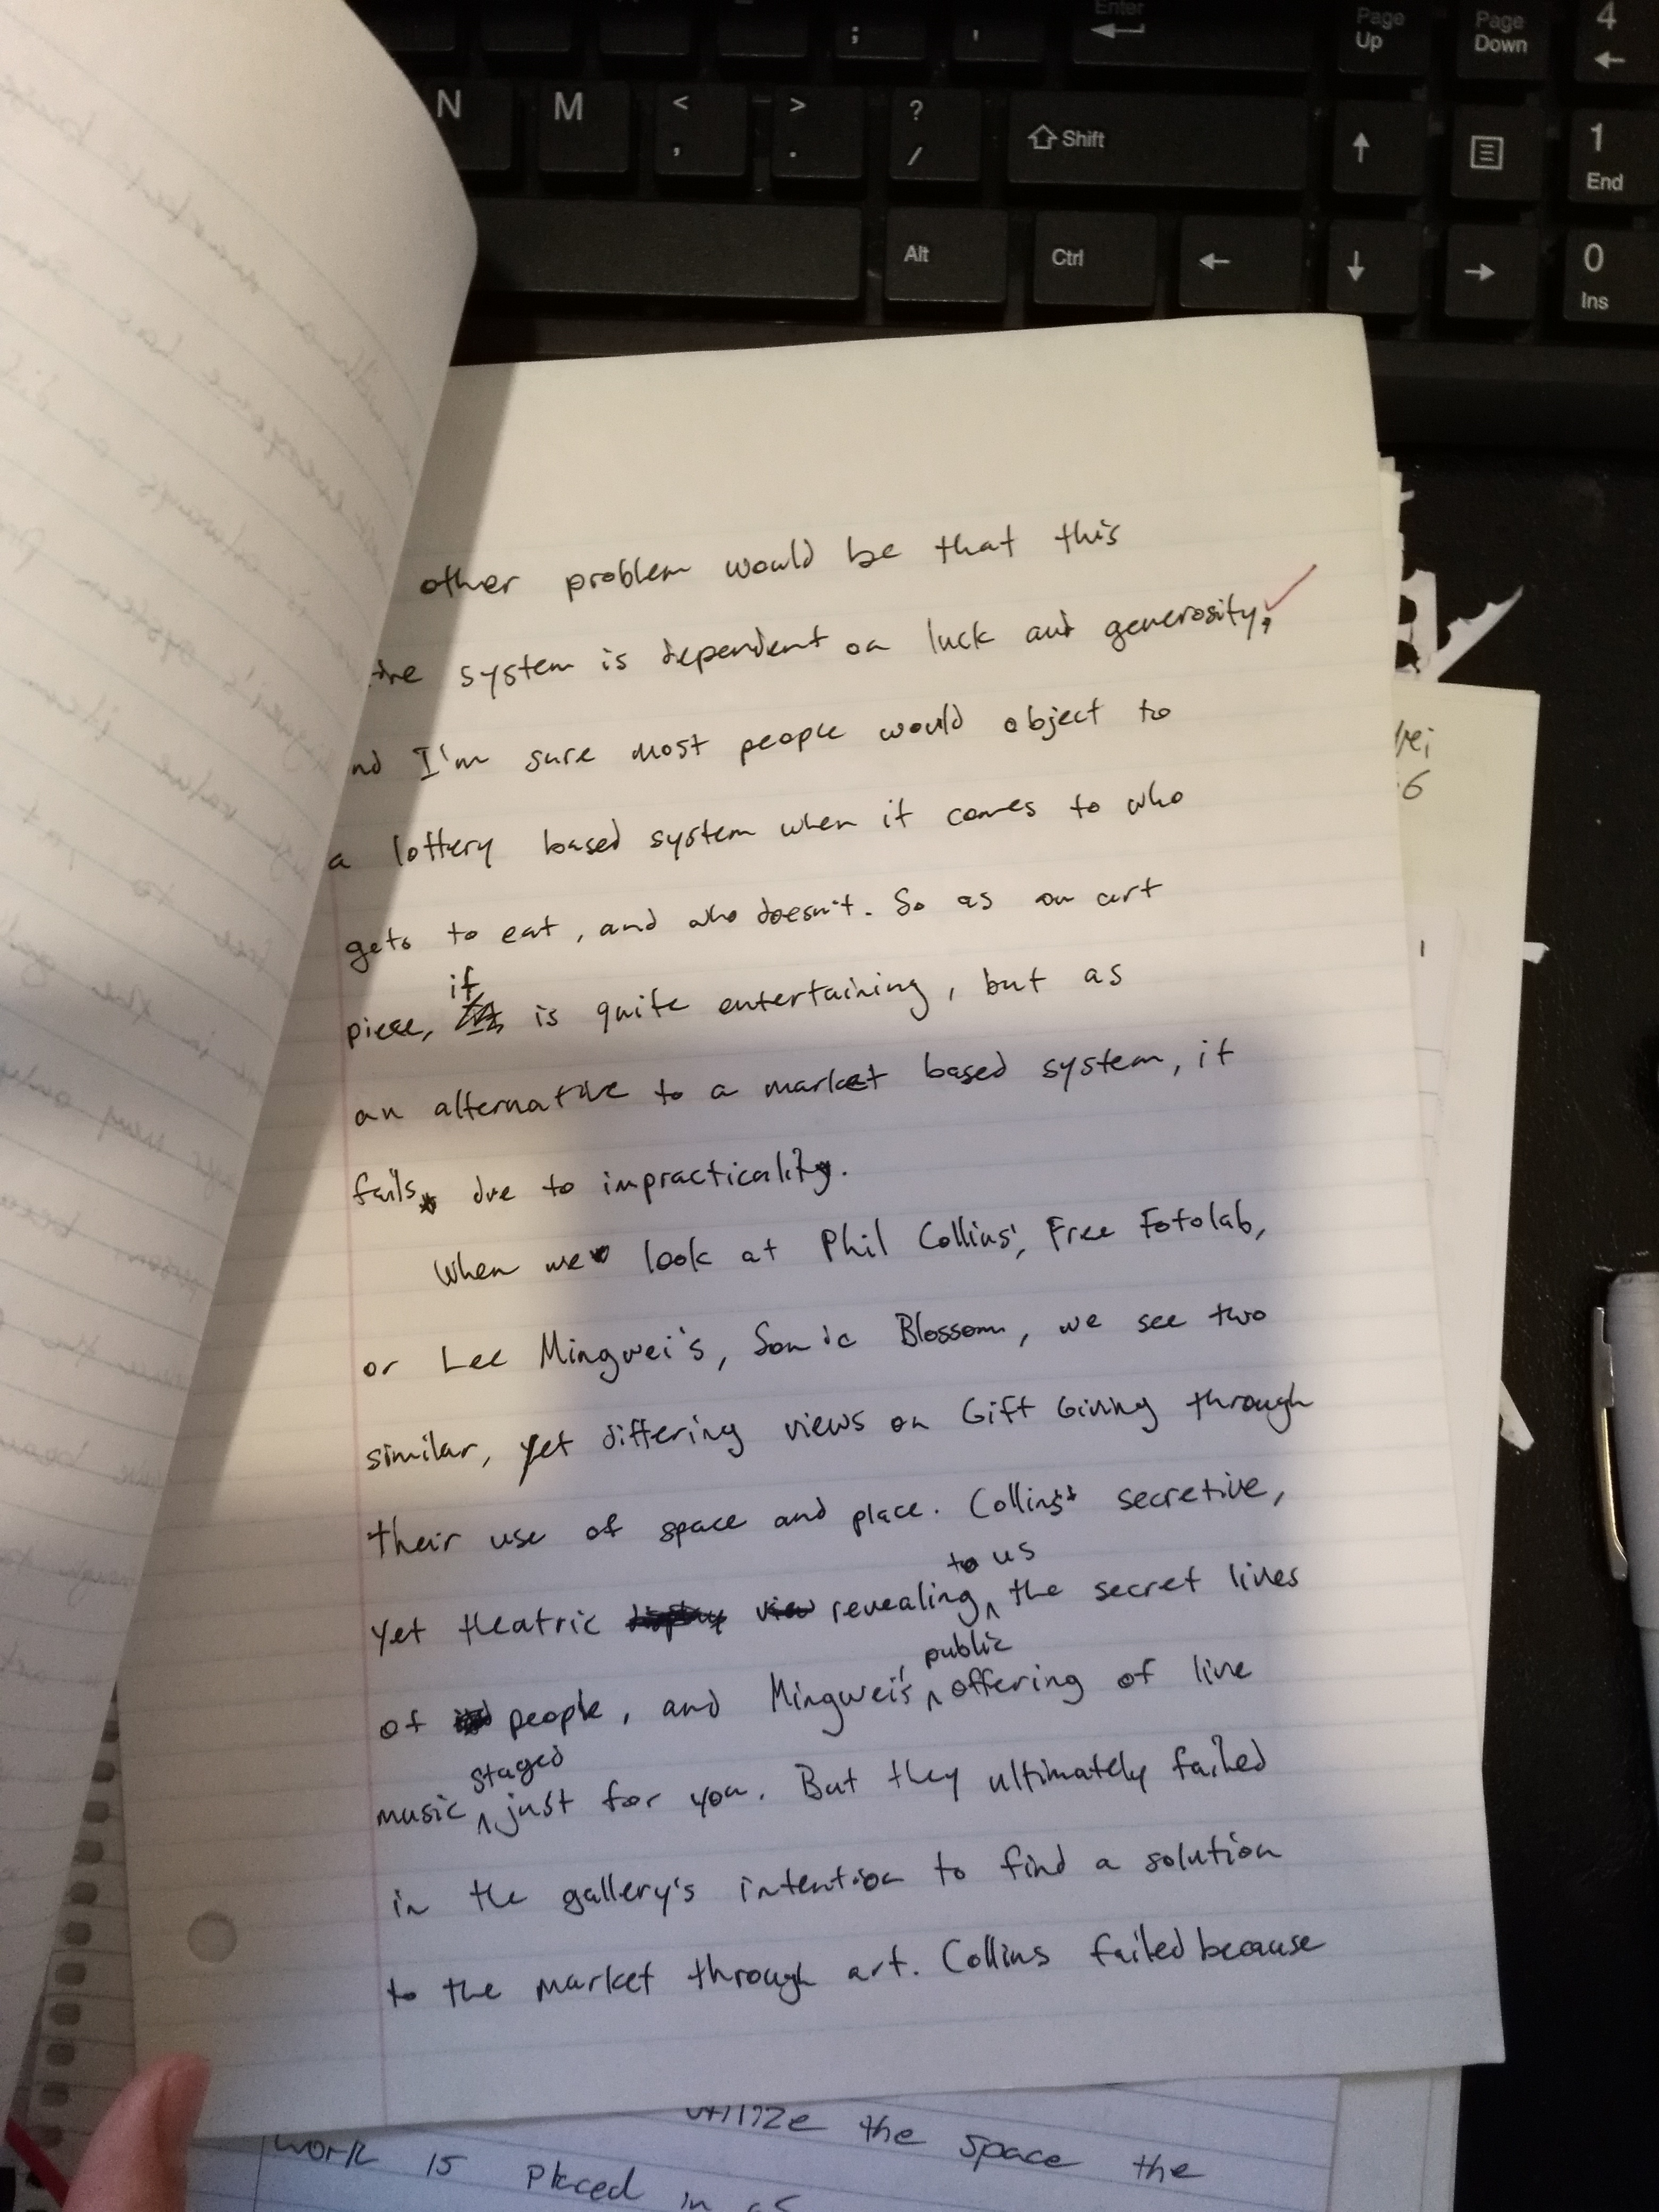 Enter
Page Up
Page Down
4
;
'
N
M
<
,
>
.
?
/
Shift
1
End
Alt
Ctrl
0
Ins
other problem would be that this
system is dependent on luck and generosity,
nd I'm sure most people would object to
a lottery based system when it comes to who
gets to eat, and who doesn't. So as an art
piece, it is quite entertaining, but as
an alternative to a market based system, it
fails due to impracticality.
When we look at Phil Collins', Free Fotolab,
or Lee Mingwei's, Sonic Blossom, we see two
similar, yet differing views on Gift Giving through
their use of space and place. Collins' secretive,
yet theatric revealing to us the secret lives
of people, and Mingwei's public offering of live
music staged just for you. But they ultimately failed
in the gallery's intention to find a solution
to the market through art. Collins failed because
utilize the space the
work is placed in as